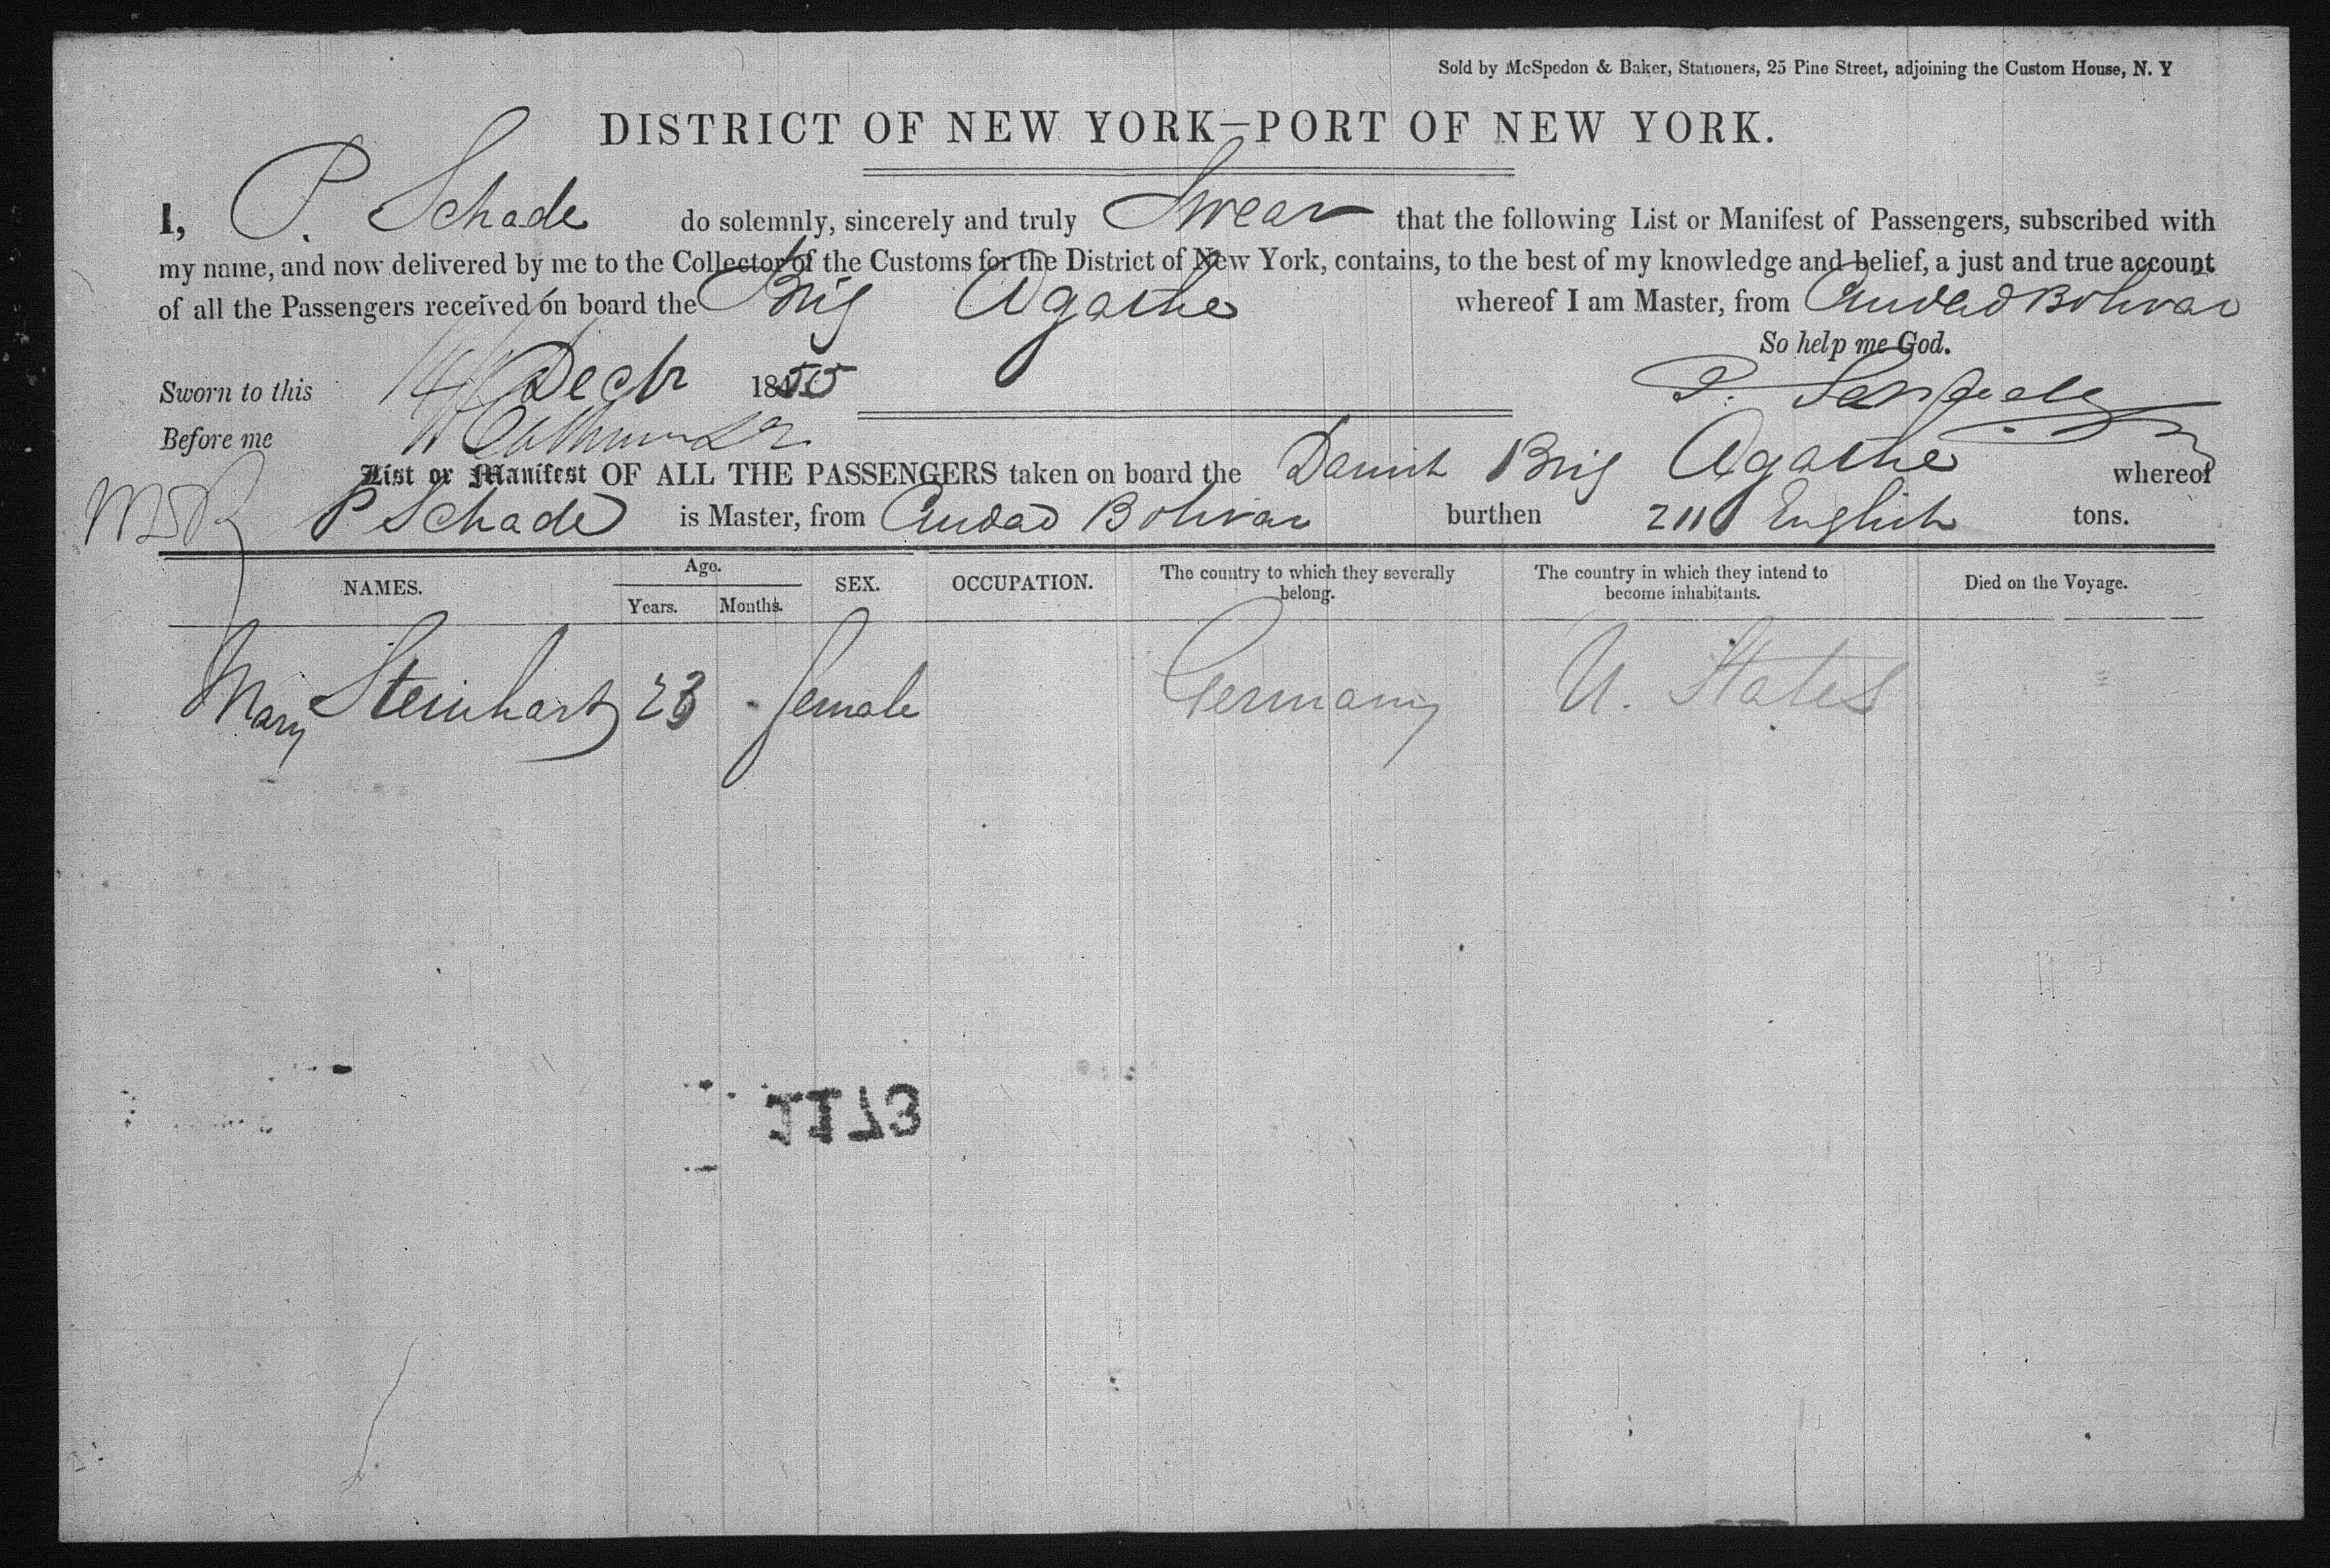 Sold by McSpedon & Baker, Stationers, 25 Pine Street, adjoining the Custom House, N. Y
DISTRICT OF NEW YORK—PORT OF NEW YORK.
I, P. Schade do solemnly, sincerely and truly Swear that the following List or Manifest of Passengers, subscribed with
my name, and now delivered by me to the Collector of the Customs for the District of New York, contains, to the best of my knowledge and belief, a just and true account
of all the Passengers received on board the Brig Agathe whereof I am Master, from Ciudad Bolivar
So help me God.
Sworn to this 14 Decbr 1855 P.
Before me
List or Manifest OF ALL THE PASSENGERS taken on board the Danish Brig Agathe whereof
P Schade is Master, from Ciudad Bolivar burthen 211 English tons.
NAMES. Age. Years. Months. SEX. OCCUPATION. The country to which they severally belong. The country in which they intend to become inhabitants. Died on the Voyage.
Mary Steinhart 23 female Germany U. States
1173